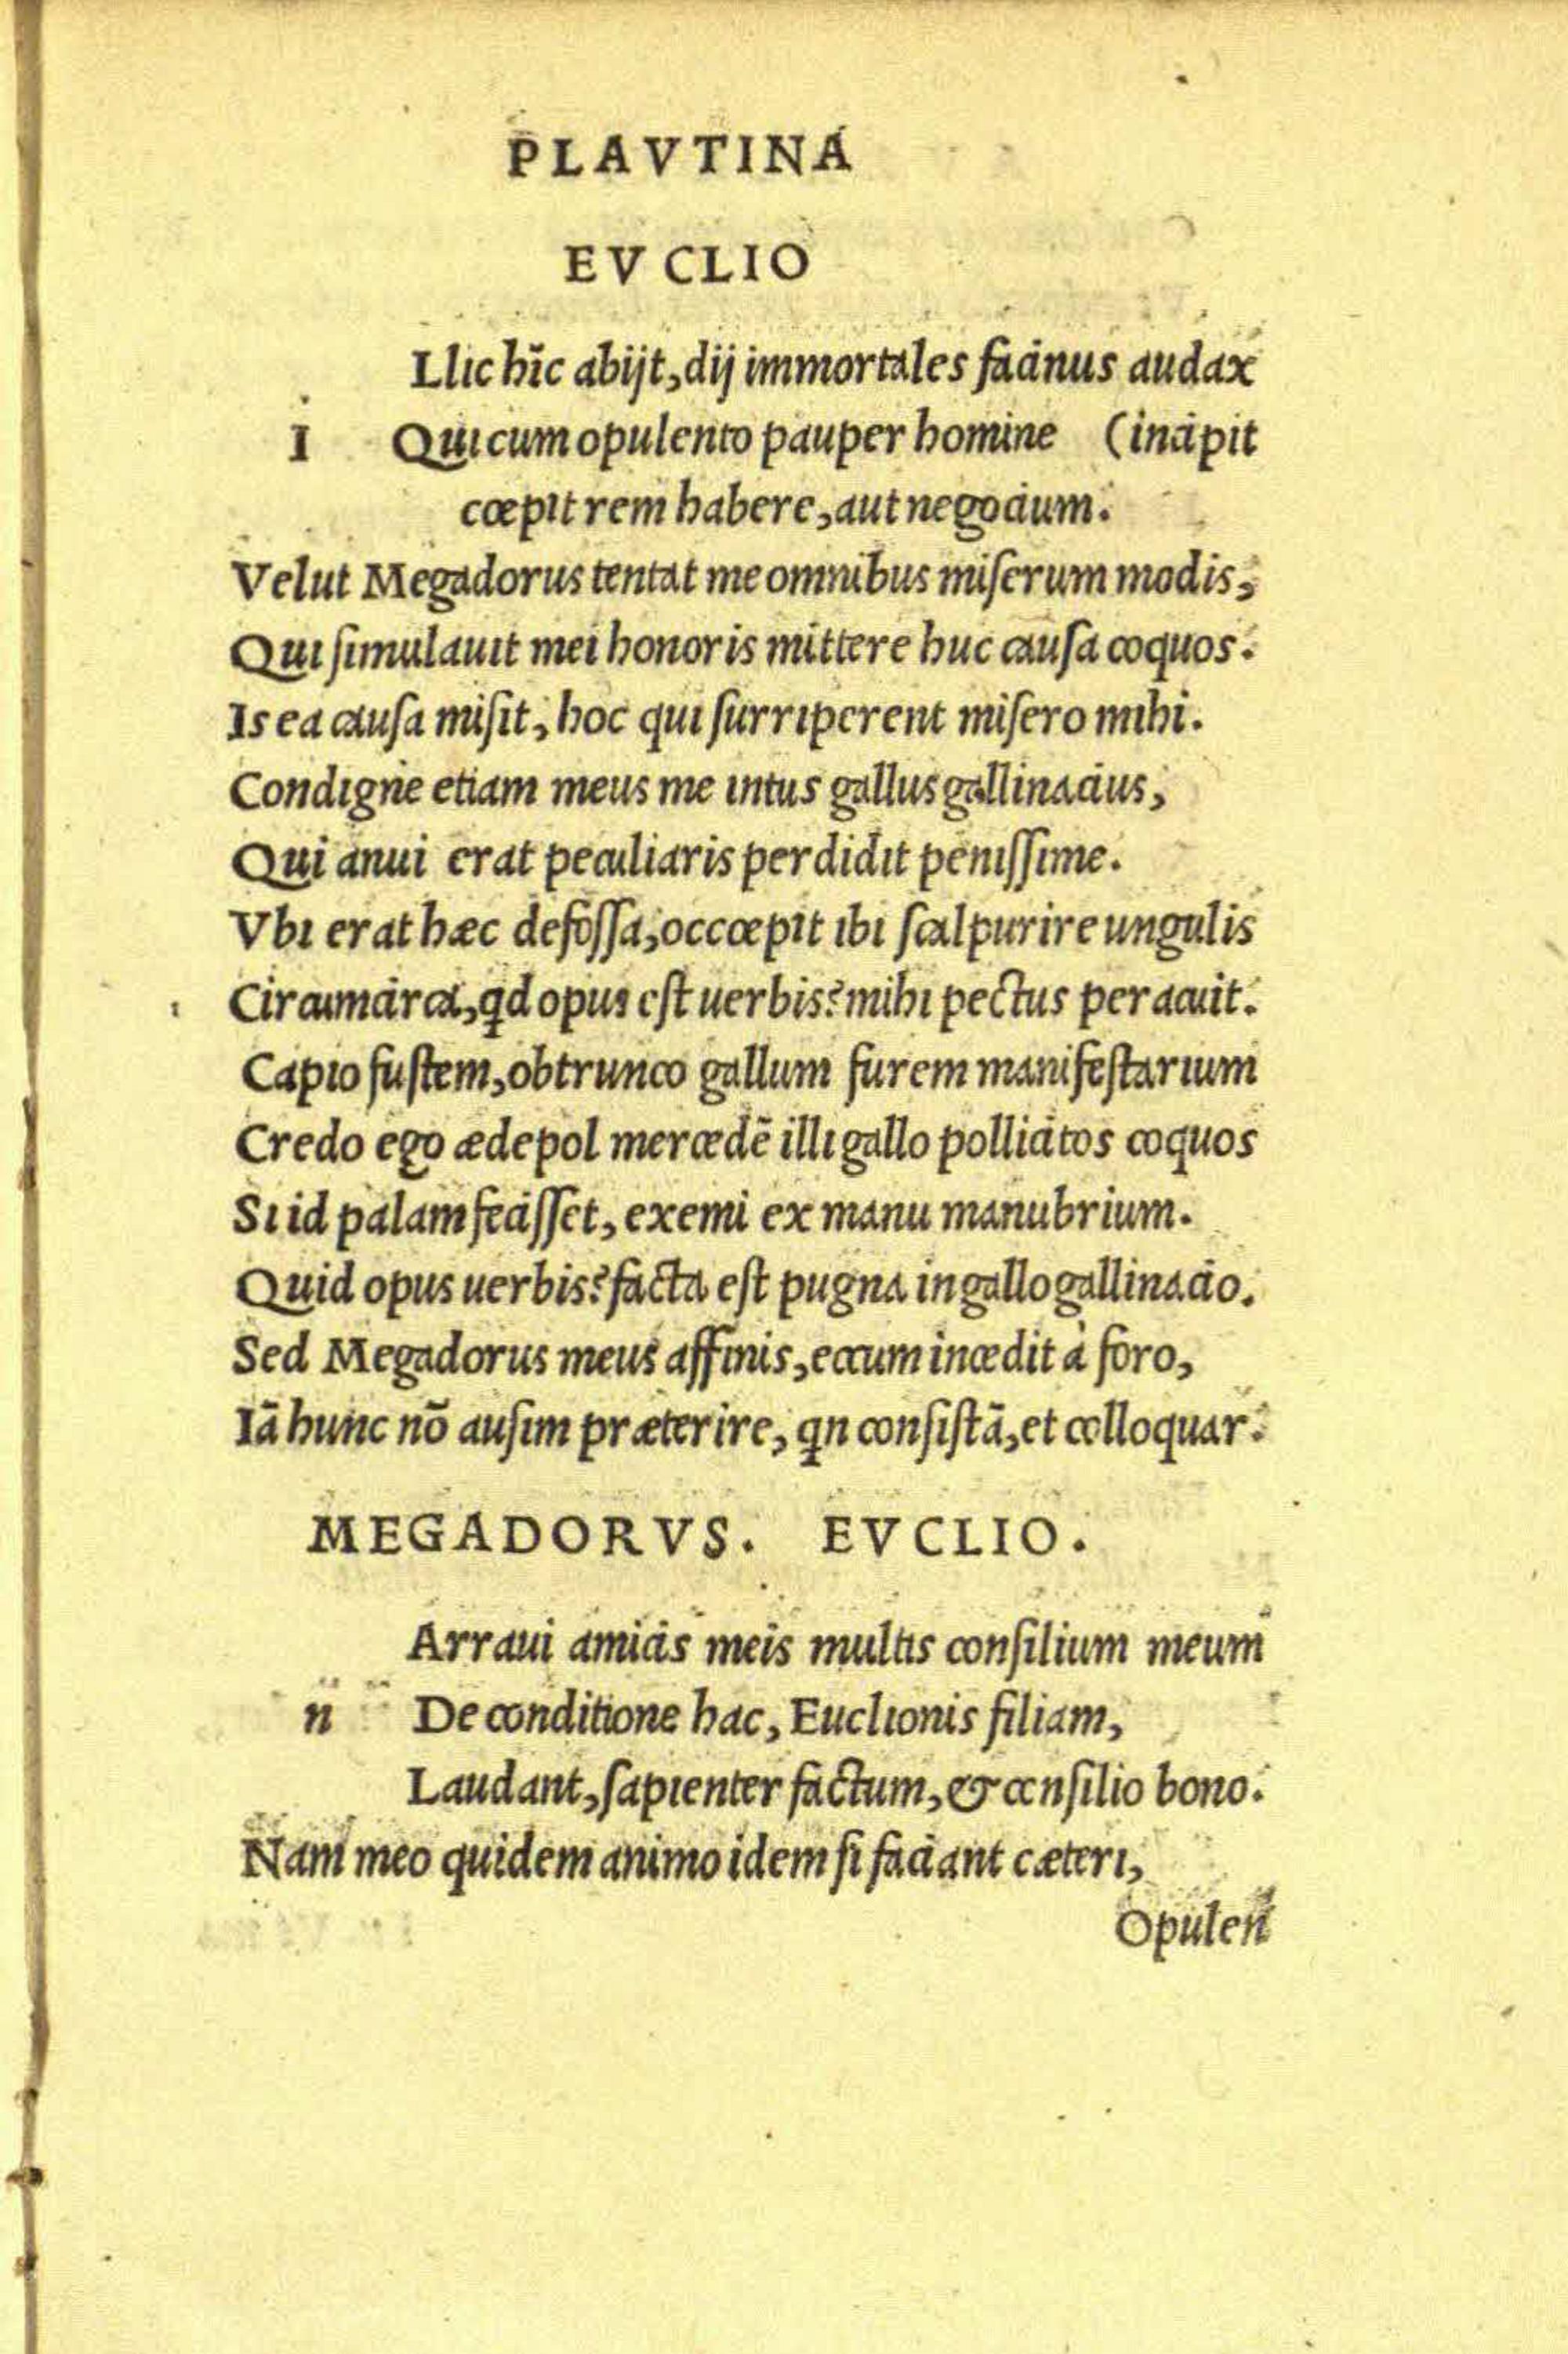 PLAVTINA
EVCLIO
Llic hīc abijt, dij immortales facinus audax
I Qui cum opulento pauper homine (incipit
cœpit rem habere, aut negocium.
Velut Megadorus tentat me omnibus miserum modis,
Qui simulauit mei honoris mittere huc causa coquos.
Is ea causa misit, hoc qui surriperent misero mihi.
Condigne etiam meus me intus gallus gallinacius,
Qui anui erat peculiaris perdidit penissime.
Vbi erat hæc defossa, occœpit ibi scalpurire ungulis
Circumcirca, qd opus est uerbis? mihi pectus peracuit.
Capio fustem, obtrunco gallum furem manifestarium
Credo ego ædepol mercedē illi gallo pollicitos coquos
Si id palam fecisset, exemi ex manu manubrium.
Quid opus uerbis? facta est pugna in gallo gallinacio.
Sed Megadorus meus affinis, eccum incedit à foro,
Iā hunc nō ausim præterire, qn consistā, et colloquar.
MEGADORVS. EVCLIO.
Arraui amicis meis multis consilium meum
n De conditione hac, Euclionis filiam,
Laudant, sapienter factum, & consilio bono.
Nam meo quidem animo idem si faciant cæteri,
Opulen